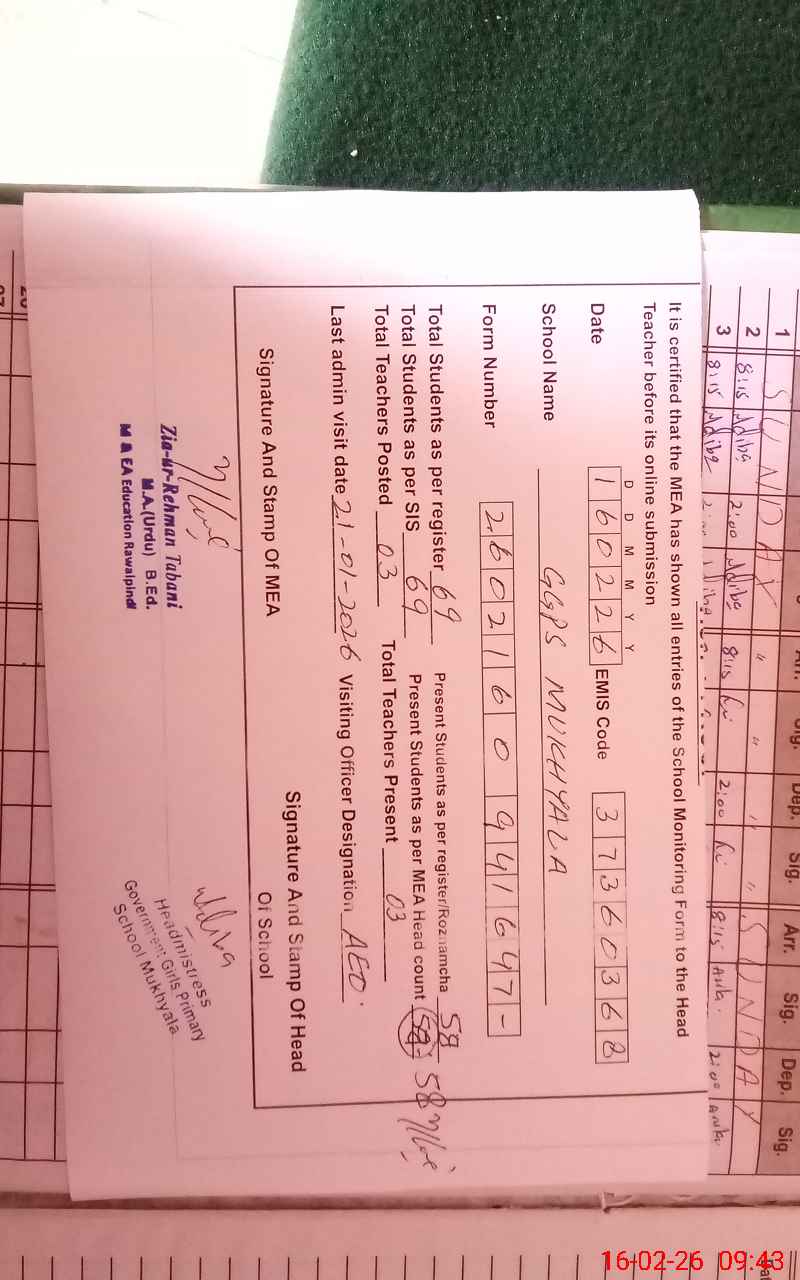 1 SUNDAY " " " " SUNDAY
2 8:15 Adiba 2:00 Adiba 8:15 2:00 8:15 2:00
3 8:15 Adiba
Arr. Sig. Dep. Sig. Arr. Sig. Dep. Sig.
It is certified that the MEA has shown all entries of the School Monitoring Form to the Head
Teacher before its online submission
D D M M Y Y
Date 160226 EMIS Code 37360368
School Name GGPS MUKHYALA
Form Number 2602160 941647-
Total Students as per register 69 Present Students as per register/Roznamcha 58
Total Students as per SIS 69 Present Students as per MEA Head count 58
Total Teachers Posted 03 Total Teachers Present 03
Last admin visit date 21-01-2026 Visiting Officer Designation AEO
Signature And Stamp Of MEA
Signature And Stamp Of Head
Of School
Zia-ur-Rehman Tabani
M.A.(Urdu) B.Ed.
M & EA Education Rawalpindi
Adiba
Headmistress
Government Girls Primary
School Mukhyala
16-02-26 09:43